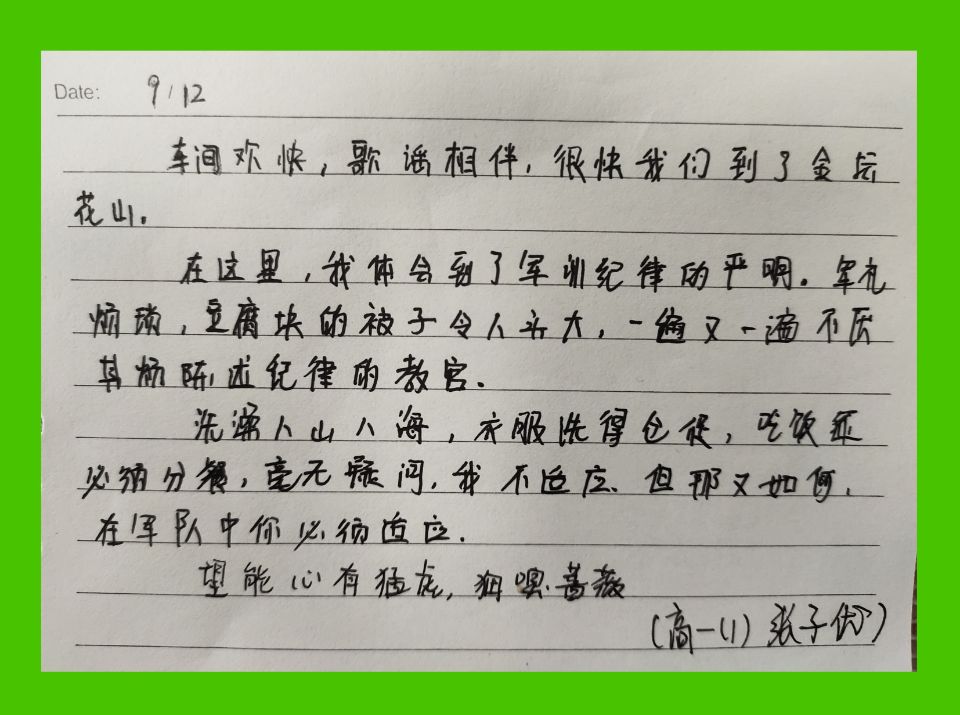 Date: 9/12
车间欢快,歌谣相伴,很快我们到了金坛
花山.
在这里,我体会到了军训纪律的严明.军礼
烦琐,豆腐块的被子令人头大,一遍又一遍不厌
其烦陈述纪律的教官.
洗澡人山人海,衣服洗得仓促,吃饭还
必须分餐,毫无疑问,我不适应.但那又如何,
在军队中你必须适应.
望能心有猛虎,细嗅蔷薇
(高一(1) 张子优)